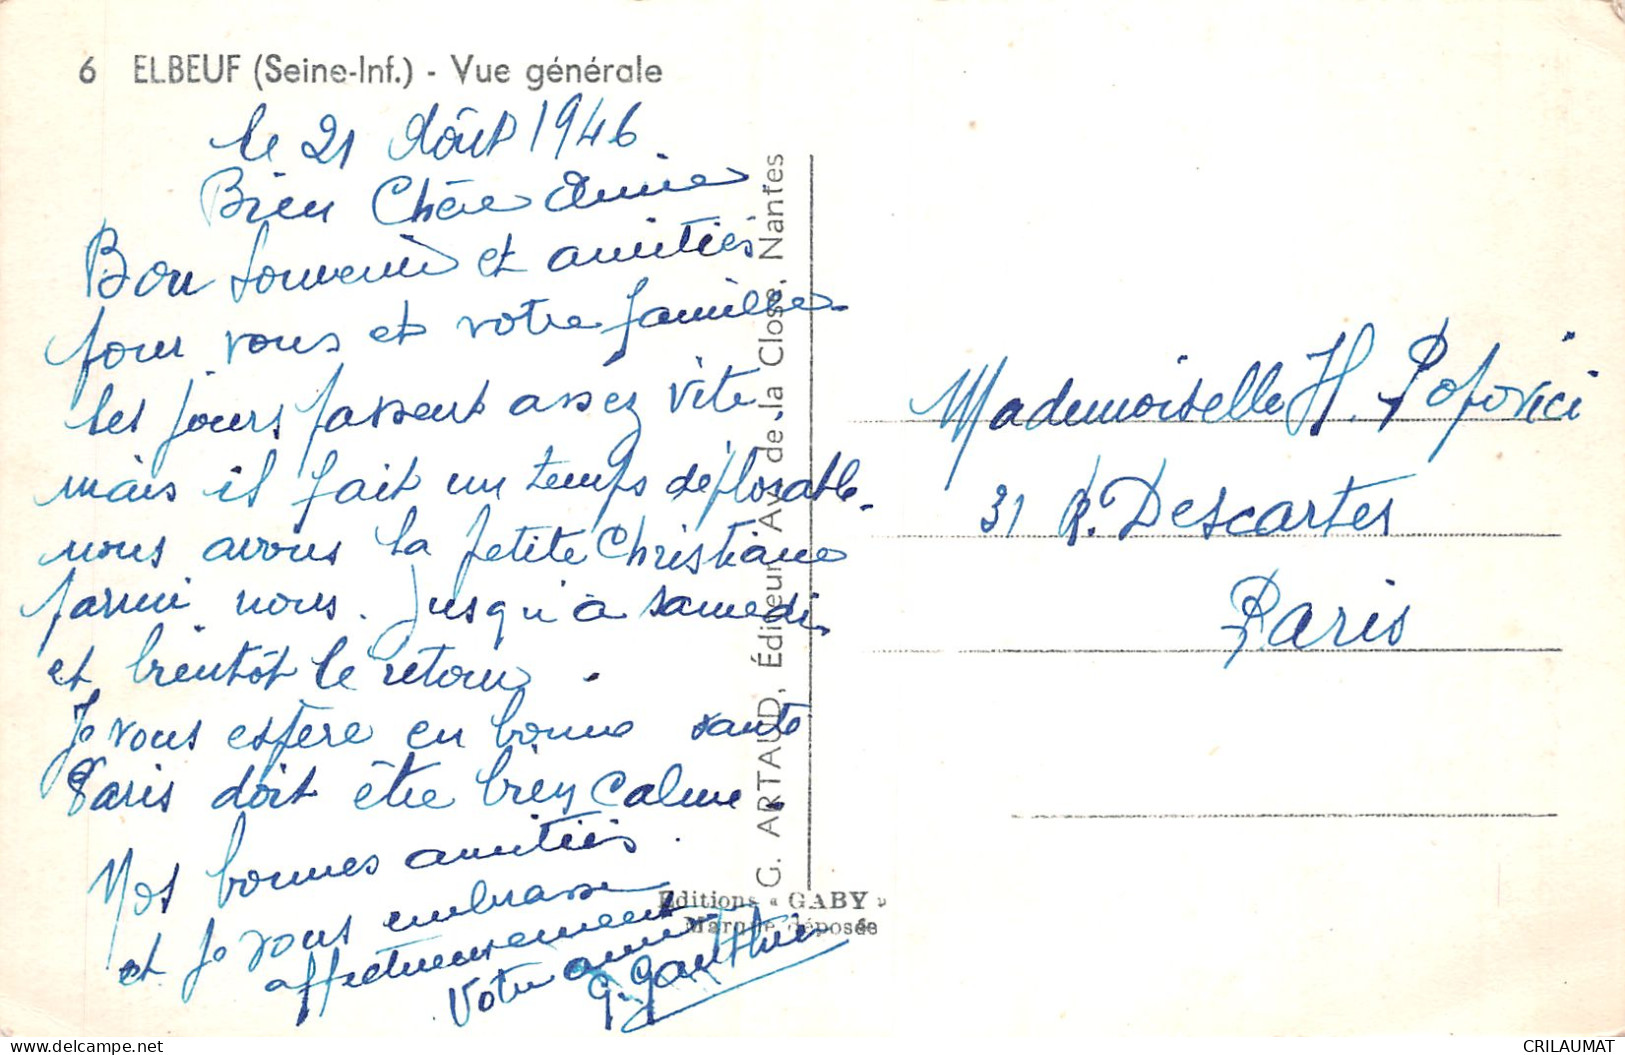 6 ELBEUF (Seine-Inf.) - Vue générale
le 21 Août 1946
Bien Chère Amie
Bon Souvenir et amitiés
pour vous et votre famille.
Les jours passent assez vite
mais il fait un temps déplorable.
nous avons la petite Christiane
parmi nous. jusqu'à samedi
et bientôt le retour.
Je vous espère en bonne santé
Paris doit être bien calme.
Nos bonnes amitiés.
et je vous embrasse
affectueusement
Votre amie
G. Gauthier
G. ARTAUD, Éditeur, Av. de la Close, Nantes
Editions « GABY »
Marque déposée
Mademoiselle H. Popovici
31 R. Descartes
Paris
CRILAUMAT